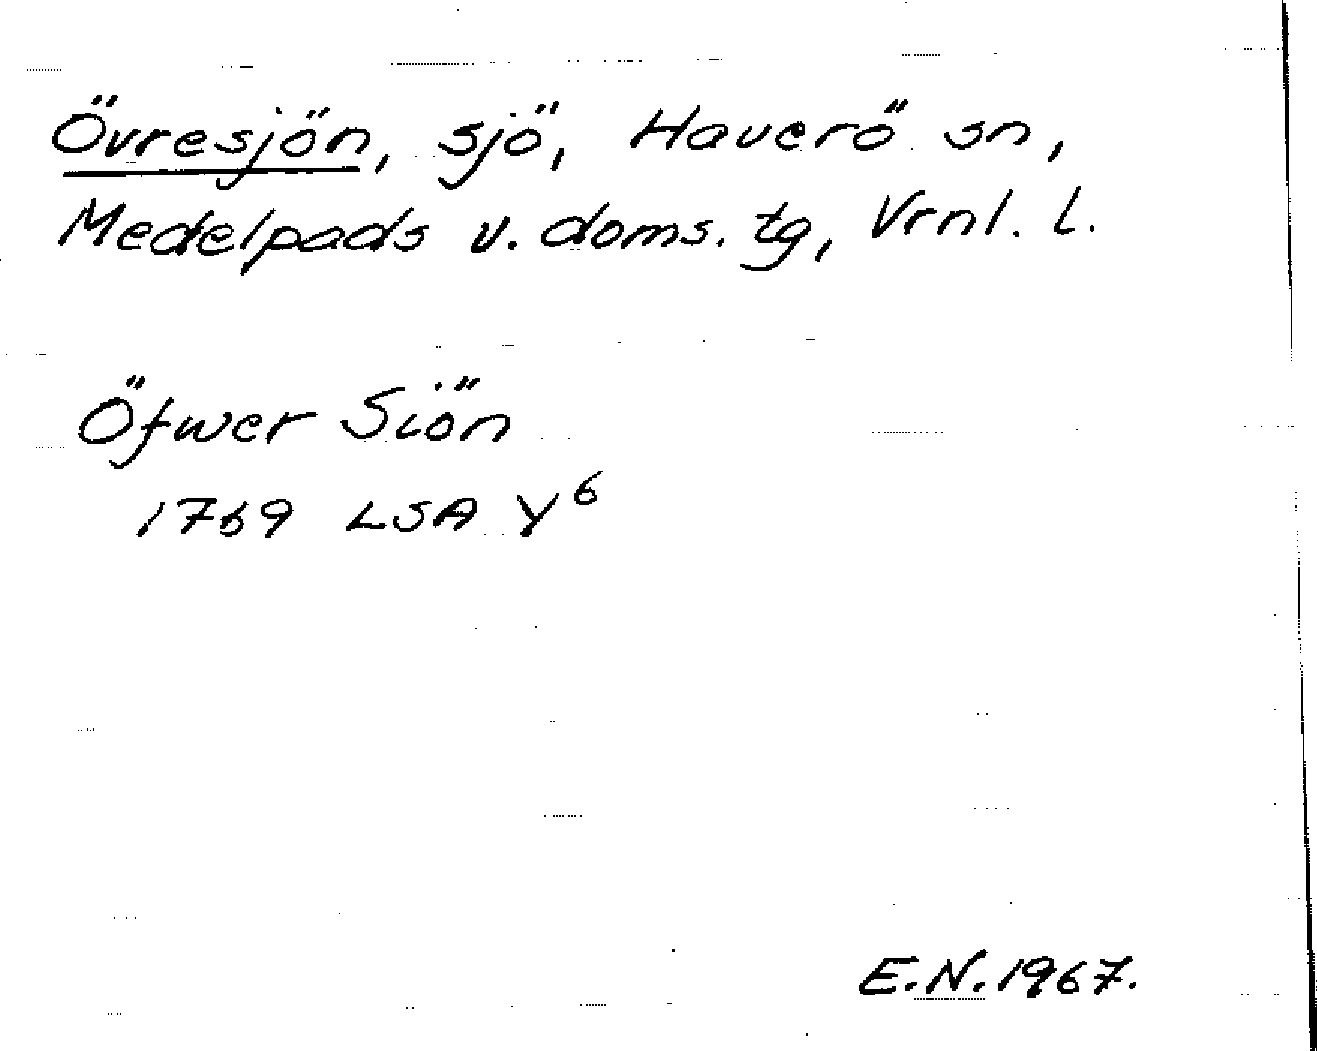 Övresjön, sjö, Haverö sn,
Medelpads v. doms. tg, Vrnl. l.
Öfwer Siön
1769 LSA Y⁶
E.N. 1967.